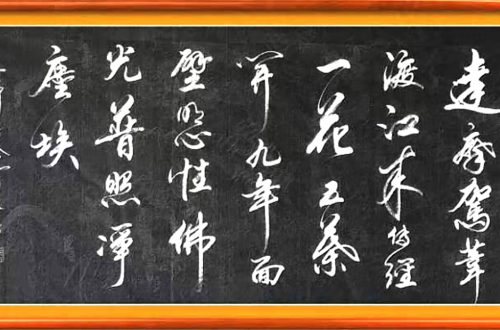 達摩駕葦
渡江来传經
一花五葉
開九年面
壁性佛
光普照淨
塵埃